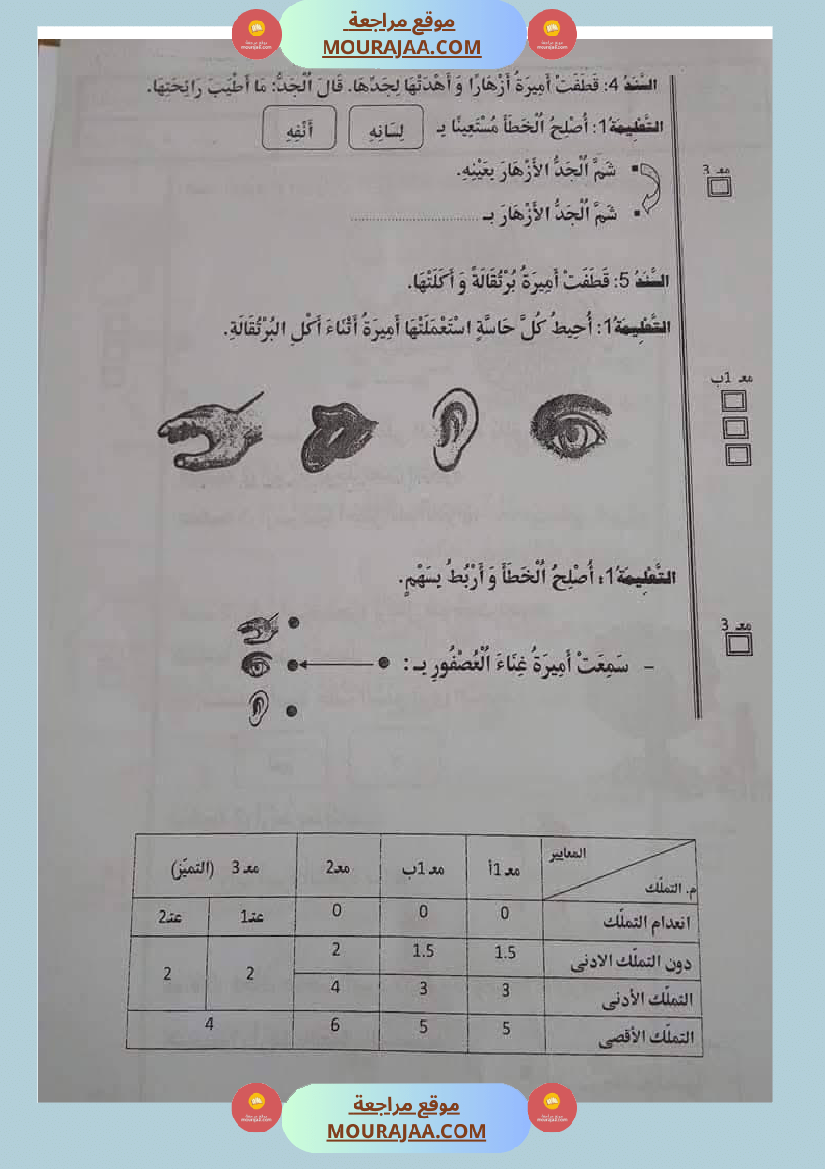 موقع مراجعة
MOURAJAA.COM
السَّنَدُ 4: قَطَفَتْ أَمِيرَةُ أَزْهَارًا وَ أَهْدَتْهَا لِجَدِّهَا. قَالَ اُلْجَدُّ: مَا أَطْيَبَ رَائِحَتِهَا.
التَّعْلِيمَةُ1: أُصْلِحُ اُلْخَطَأَ مُسْتَعِينًا بِـ لِسَانِهِ أَنْفِهِ
معـ 3
▪ شَمَّ اُلْجَدُّ الأَزْهَارَ بِعَيْنِهِ.
▪ شَمَّ اُلْجَدُّ الأَزْهَارَ بـ ................................
السَّنَدُ 5: قَطَفَتْ أَمِيرَةُ بُرْتُقَالَةً وَ أَكَلَتْهَا.
التَّعْلِيمَةُ1: أُحِيطُ كُلَّ حَاسَّةٍ اسْتَعْمَلَتْهَا أَمِيرَةُ أَثْنَاءَ أَكْلِ البُرْتُقَالَةِ.
معـ 1ب
التَّعْلِيمَةُ1: أُصْلِحُ اُلْخَطَأَ وَ أَرْبُطُ بِسَهْمٍ.
معـ 3
– سَمِعَتْ أَمِيرَةُ غِنَاءَ اُلْعُصْفُورِ بـ :
المعايير
م. التملّك
معـ 1أ معـ 1ب معـ2 معـ 3 (التميّز)
انعدام التملّك 0 0 0 عـ1 عـ2
دون التملّك الادنى 1.5 1.5 2 2 2
التملّك الأدنى 3 3 4
التملّك الأقصى 5 5 6 4
موقع مراجعة
MOURAJAA.COM